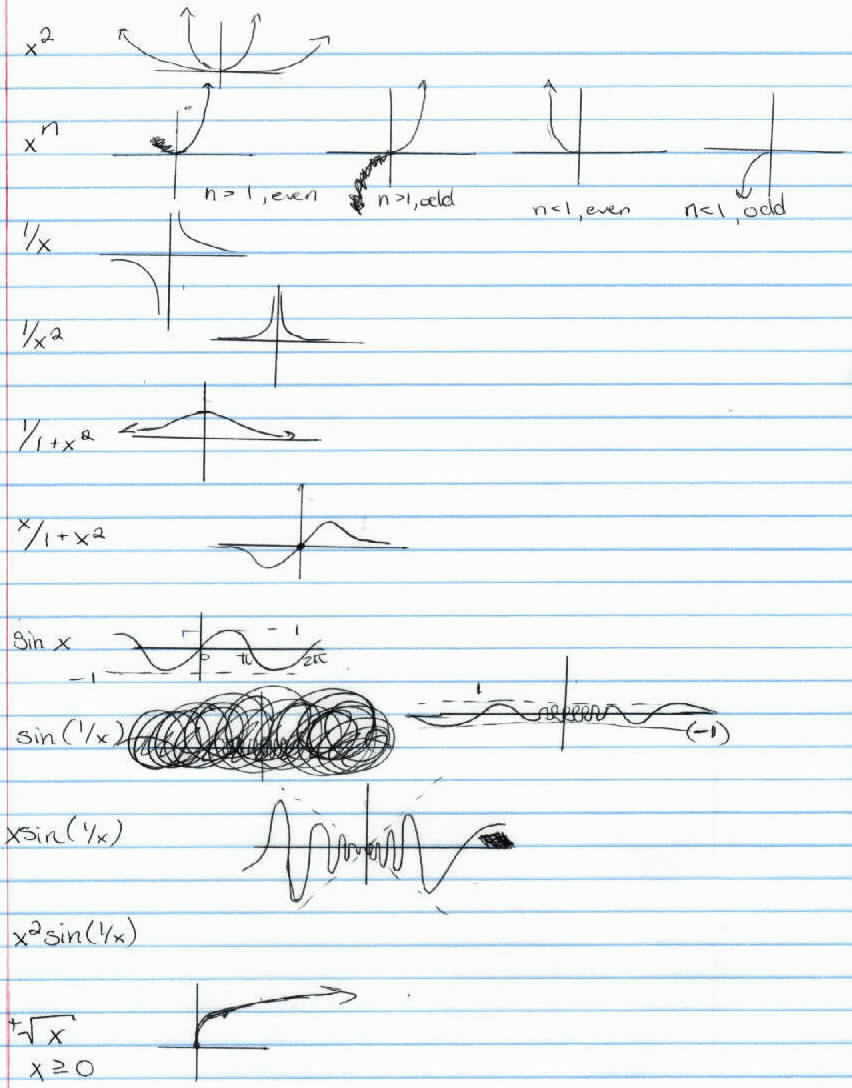 x²
xⁿ
n>1, even n>1, odd n<1, even n<1, odd
1/x
1/x²
1/1+x²
x/1+x²
sin x
1
0 π 2π
-1
sin(1/x)
1
(-1)
xsin(1/x)
x²sin(1/x)
+√x
x≥0